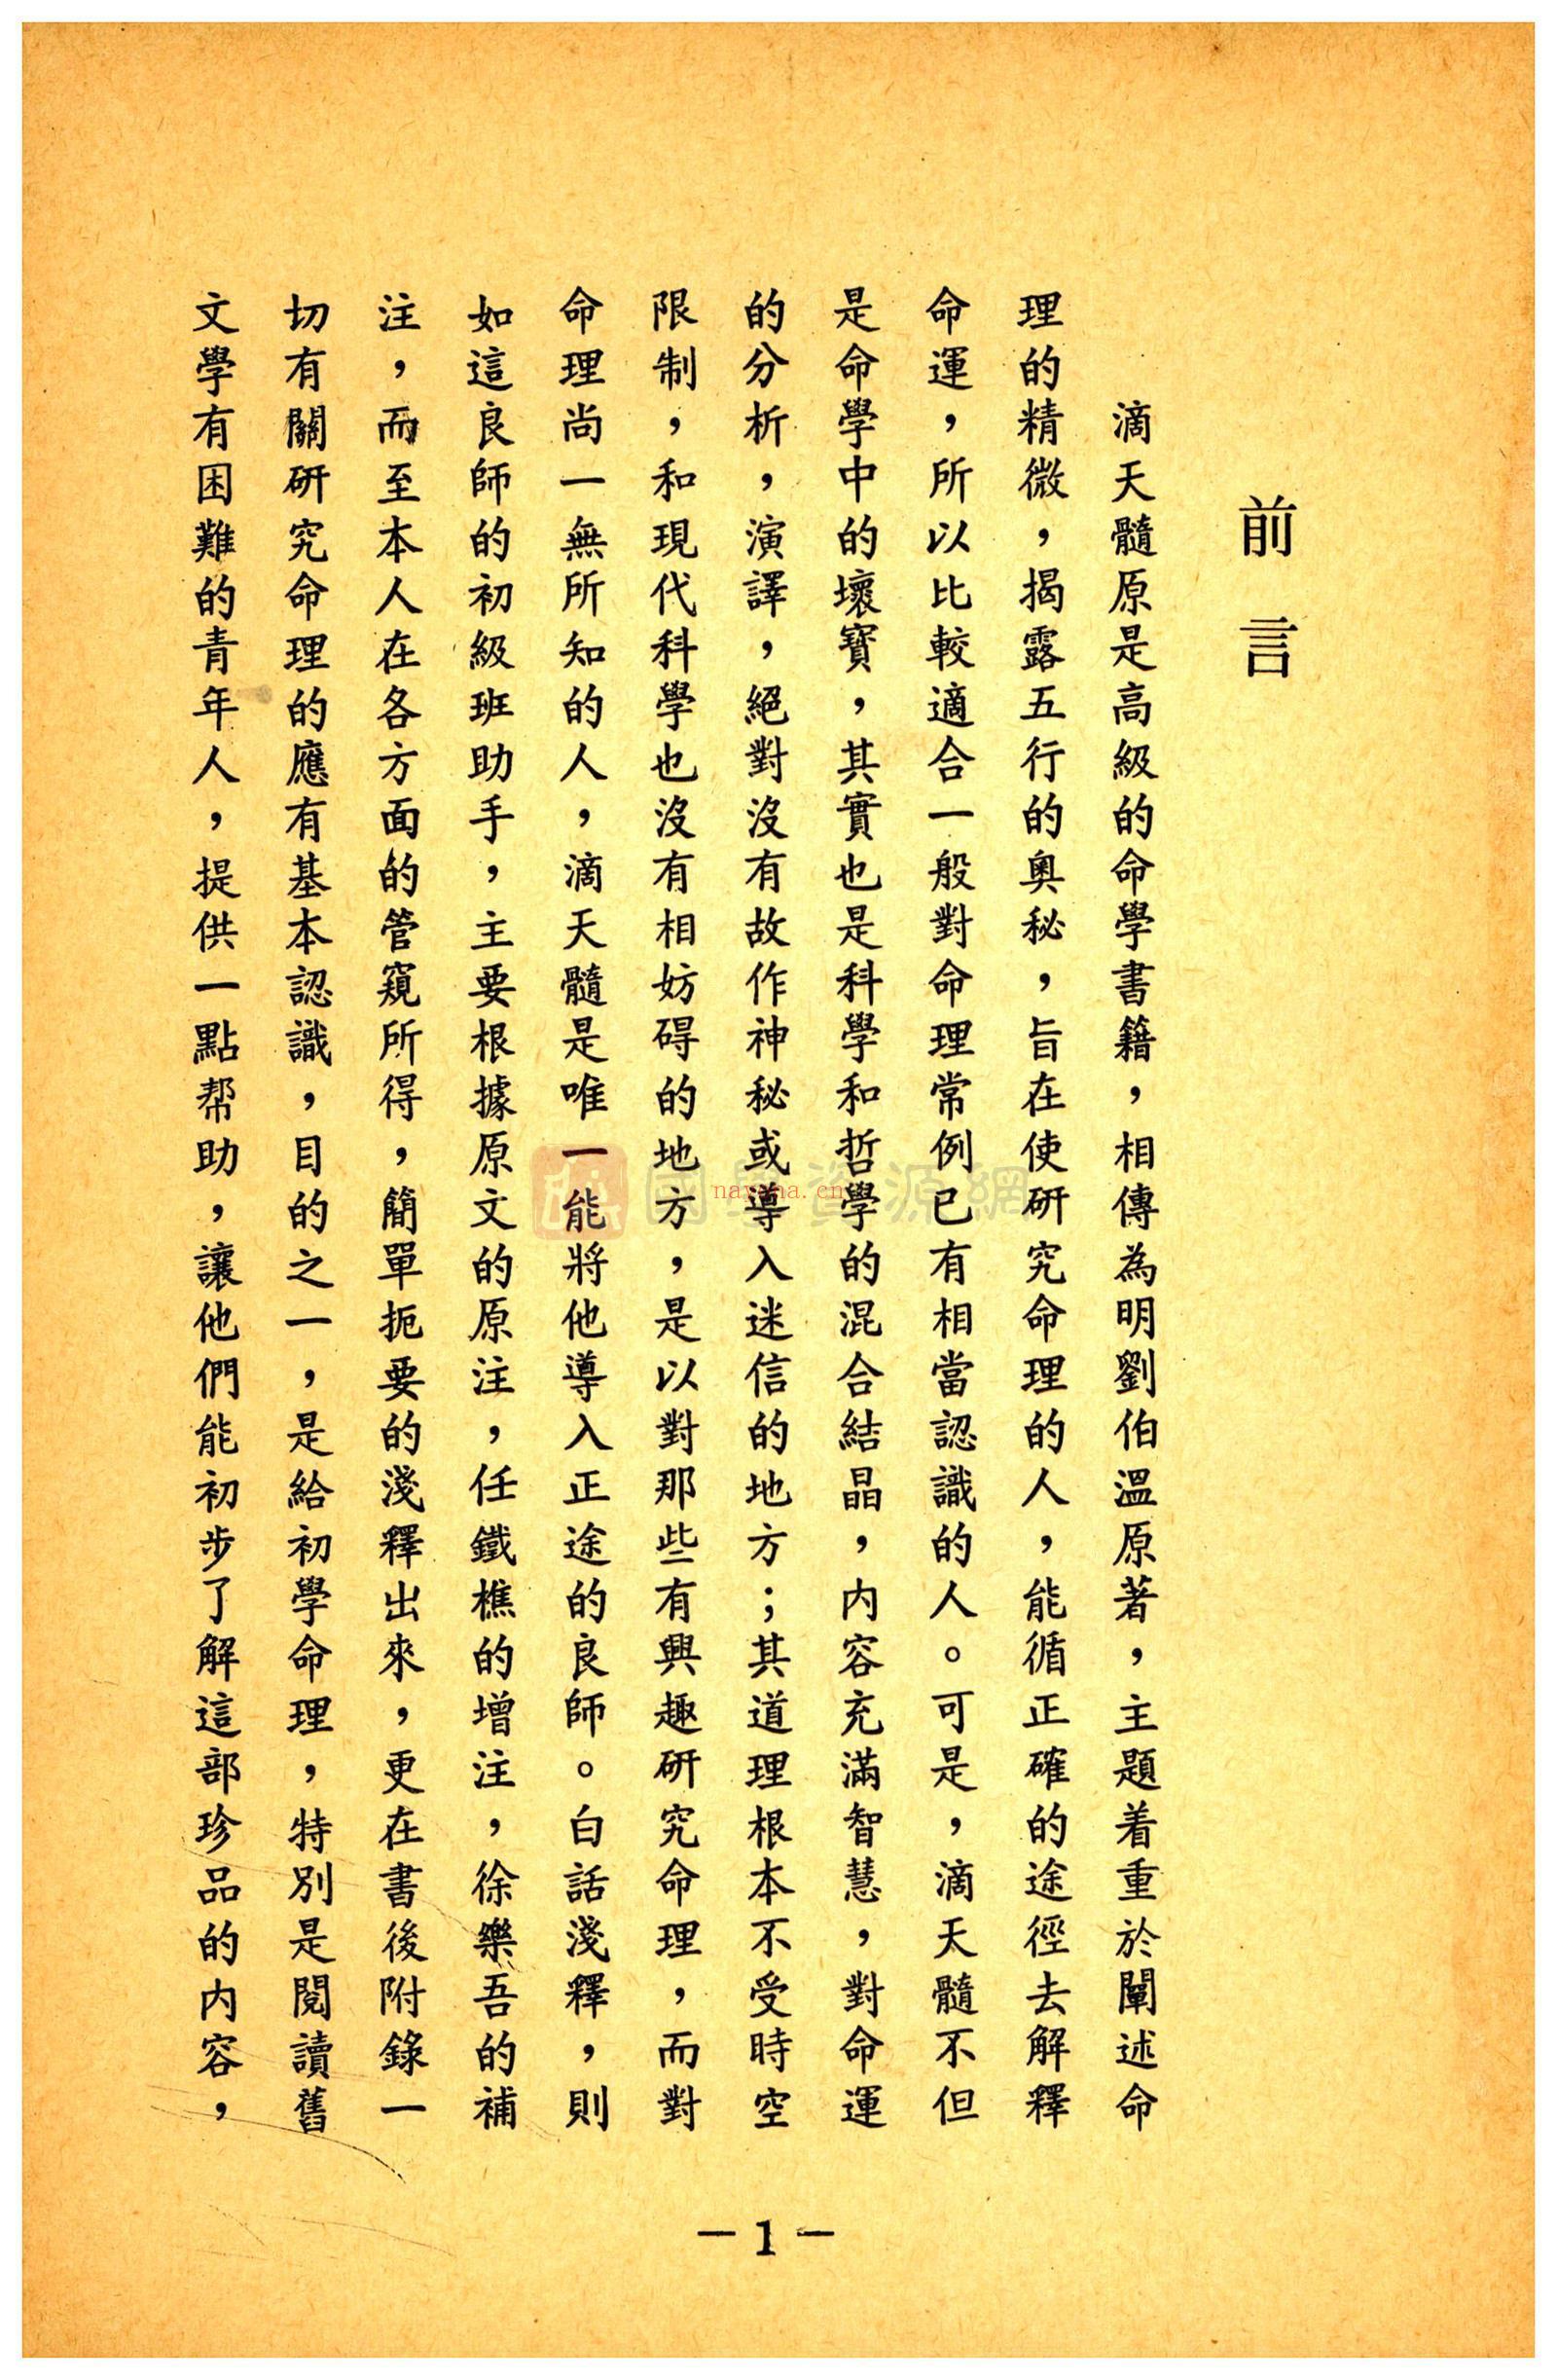 前言
滴天髓原是高級的命學書籍，相傳為明劉伯溫原著，主題着重於闡述命
理的精微，揭露五行的奧秘，旨在使研究命理的人，能循正確的途徑去解釋
命運，所以比較適合一般對命理常例已有相當認識的人。可是，滴天髓不但
是命學中的壞寶，其實也是科學和哲學的混合結晶，内容充滿智慧，對命運
的分析，演譯，絕對沒有故作神秘或導入迷信的地方；其道理根本不受時空
限制，和現代科學也沒有相妨碍的地方，是以對那些有興趣研究命理，而對
命理尚一無所知的人，滴天髓是唯一能將他導入正途的良師。白話淺釋，則
如這良師的初級班助手，主要根據原文的原注，任鐵樵的增注，徐樂吾的補
注，而至本人在各方面的管窺所得，簡單扼要的淺釋出來，更在書後附錄一
切有關研究命理的應有基本認識，目的之一，是給初學命理，特別是閱讀舊
文學有困難的青年人，提供一點帮助，讓他們能初步了解這部珍品的内容，
國學資源網
nayona.cn
－1－